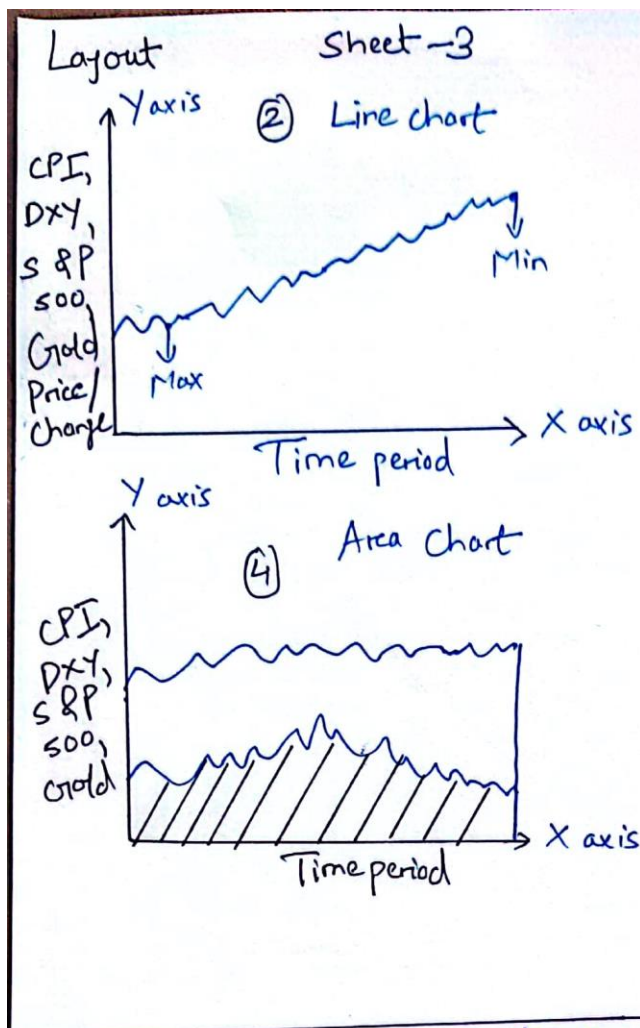 Layout Sheet-3
Y axis
② Line chart
CPI,
DXY,
S &P
500,
Gold
Price/
Change
Min
Max
X axis
Time period
Y axis
Area Chart
④
CPI,
DXY,
S &P
500,
Gold
X axis
Time period